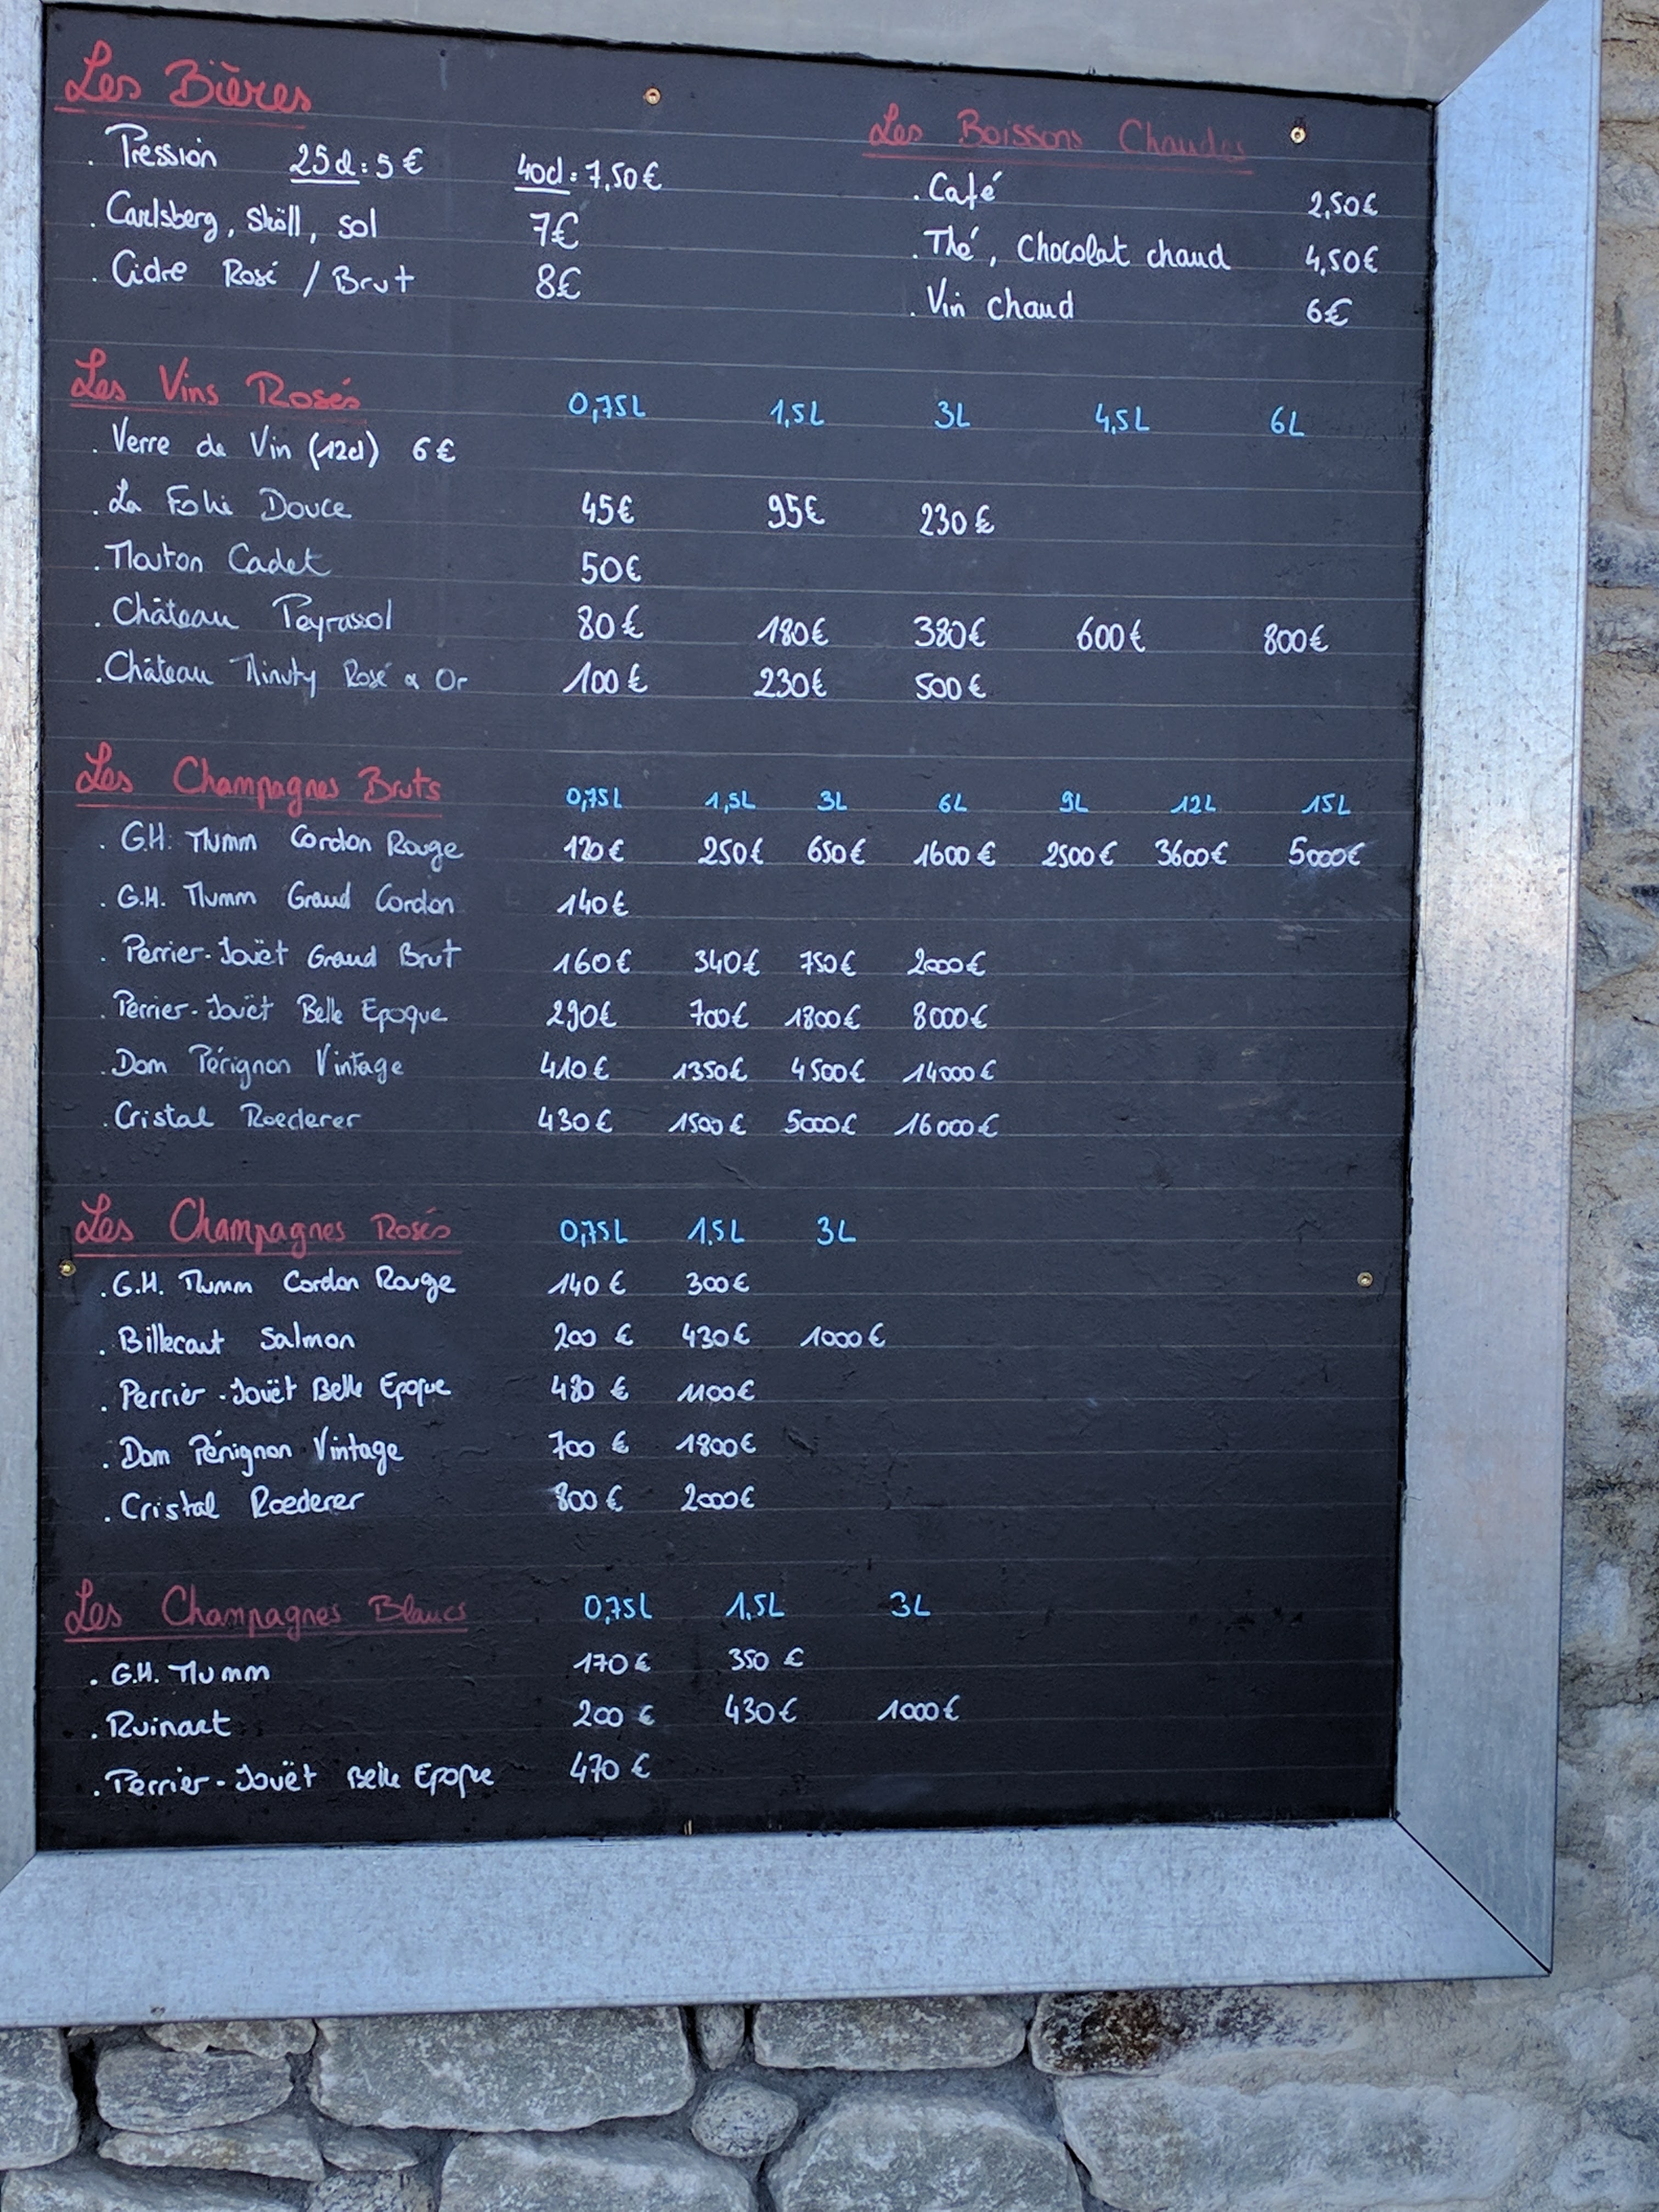 Les Bières
. Pression 25cl : 5 € 40cl : 7,50 €
. Carlsberg, Sköll, sol 7€
. Cidre Rosé / Brut 8€
Les Boissons Chaudes
. Café 2,50€
. Thé, Chocolat chaud 4,50€
. Vin chaud 6€
Les Vins Rosés 0,75L 1,5L 3L 4,5L 6L
. Verre de Vin (12cl) 6€
. La Folie Douce 45€ 95€ 230€
. Mouton Cadet 50€
. Château Peyrassol 80€ 180€ 380€ 600€ 800€
. Château Minuty Rosé & Or 100€ 230€ 500€
Les Champagnes Bruts 0,75L 1,5L 3L 6L 9L 12L 15L
. G.H. Mumm Cordon Rouge 120€ 250€ 650€ 1600€ 2500€ 3600€ 5000€
. G.H. Mumm Grand Cordon 140€
. Perrier-Jouët Grand Brut 160€ 340€ 750€ 2000€
. Perrier-Jouët Belle Epoque 290€ 700€ 1800€ 8000€
. Dom Pérignon Vintage 410€ 1350€ 4500€ 14000€
. Cristal Roederer 430€ 1500€ 5000€ 16000€
Les Champagnes Rosés 0,75L 1,5L 3L
. G.H. Mumm Cordon Rouge 140€ 300€
. Billecart Salmon 200€ 430€ 1000€
. Perrier-Jouët Belle Epoque 480€ 1100€
. Dom Pérignon Vintage 700€ 1800€
. Cristal Roederer 800€ 2000€
Les Champagnes Blancs 0,75L 1,5L 3L
. G.H. Mumm 170€ 350€
. Ruinart 200€ 430€ 1000€
. Perrier-Jouët Belle Epoque 470€